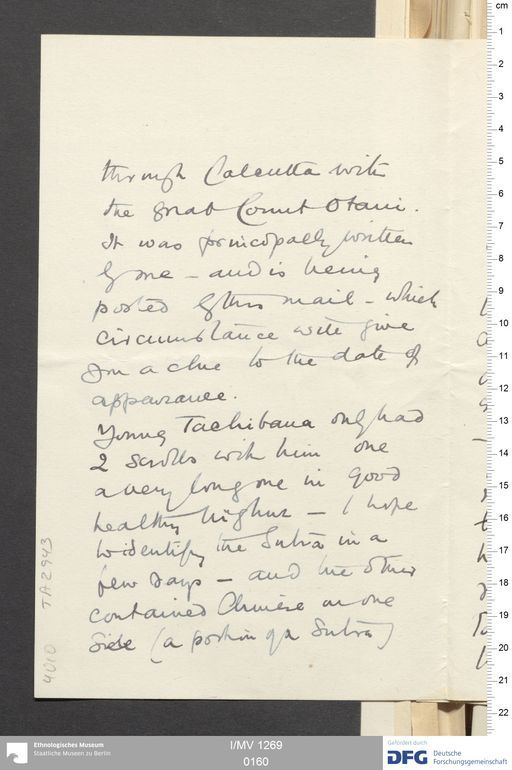 through Calcutta with
the great Count Otani.
It was principally written
by me - and is being
posted by this mail - which
circumstance will give
you a clue to the date of
appearance.
Young Tachibana only had
2 scrolls with him one
a very long one in good
healthy Uighur - I hope
to identify the Sutra in a
few days - and the other
contained Chinese on one
side (a portion of a Sutra)
TA 2943
4010
cm
1
2
3
4
5
6
7
8
9
10
11
12
13
14
15
16
17
18
19
20
21
22
Ethnologisches Museum
Staatliche Museen zu Berlin
I/MV 1269
0160
Gefördert durch
DFG Deutsche
Forschungsgemeinschaft